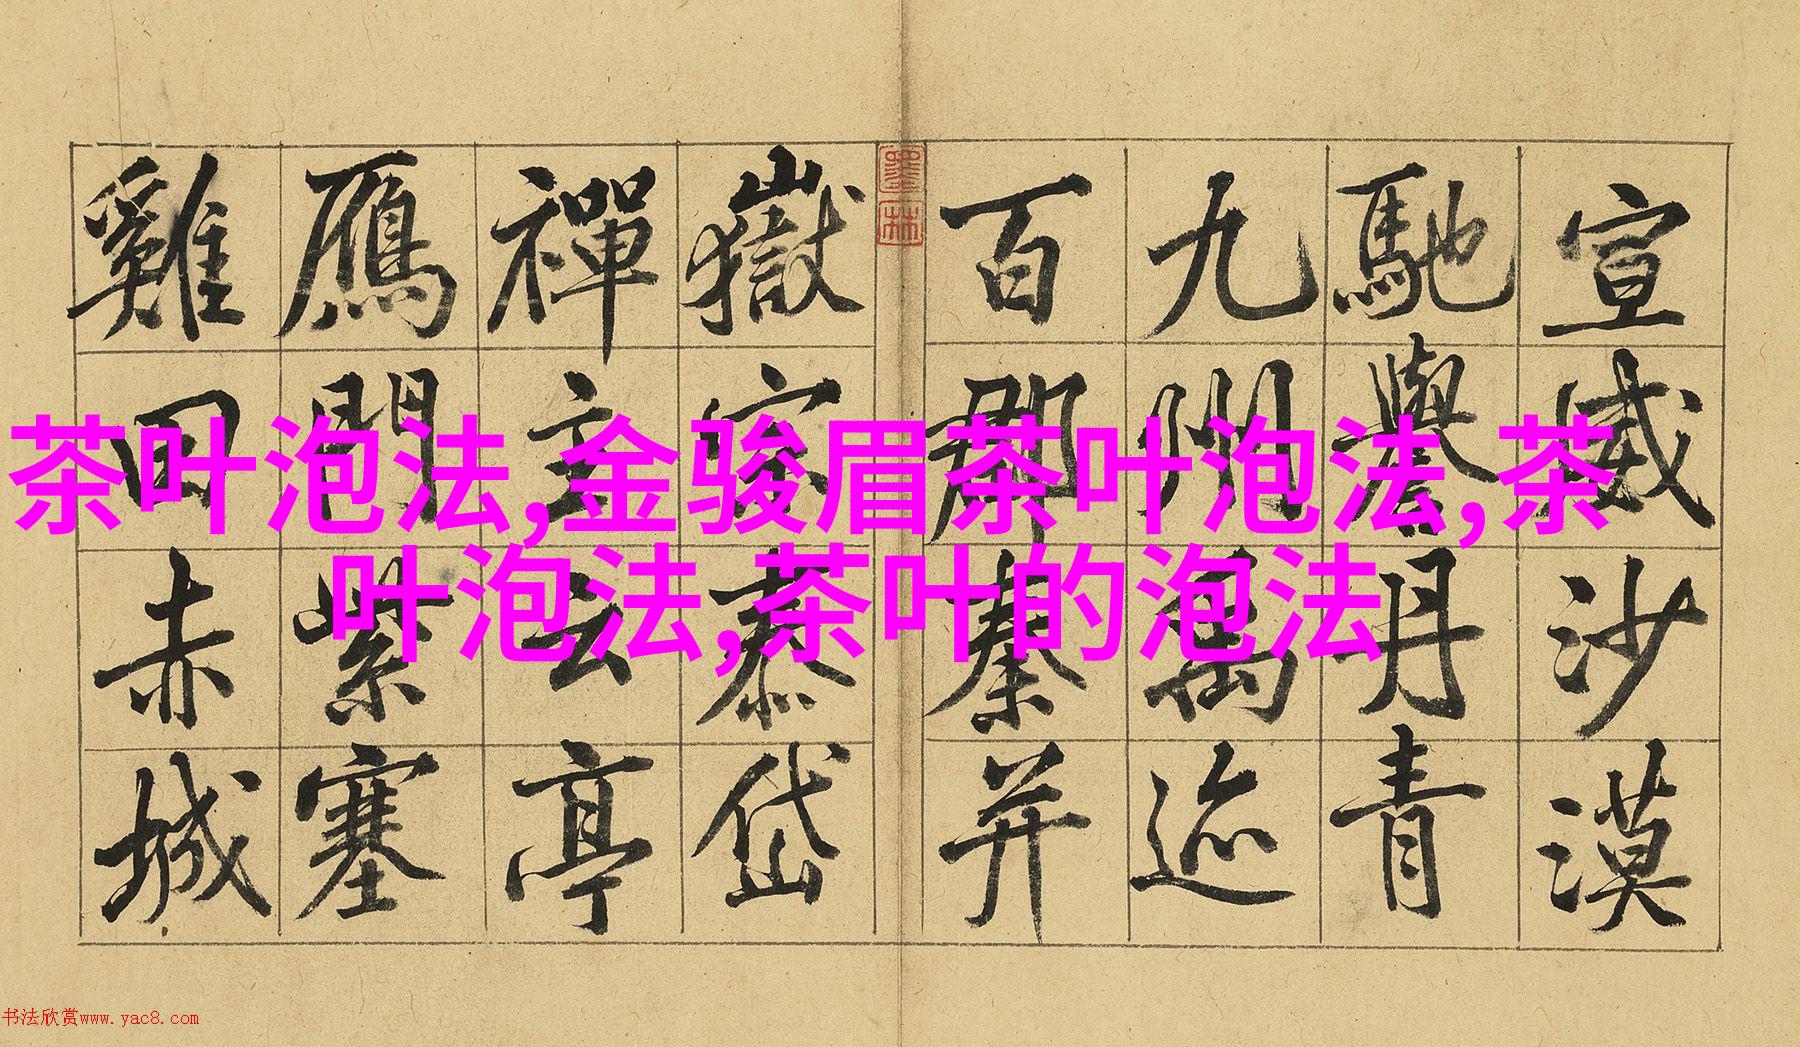 宣威沙漠
馳譽丹青
九州禹迹
百郡秦并
墨林
嶽宗泰岱
禪主云亭
鴈門紫塞
雞田赤城
茶叶泡法,金骏眉茶叶泡法,茶
叶泡法,茶叶的泡法
书法欣赏www.yac8.com